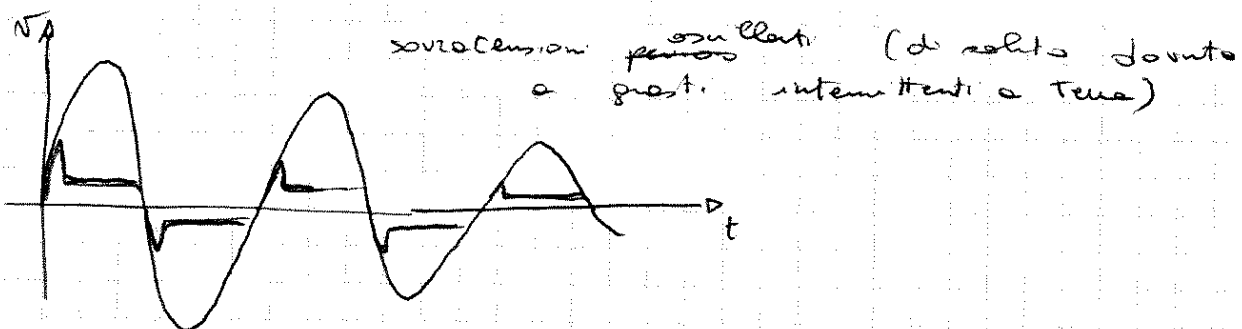 v
sovratensioni oscillanti (di solito dovute
a guasti intermittenti a Terra)
t